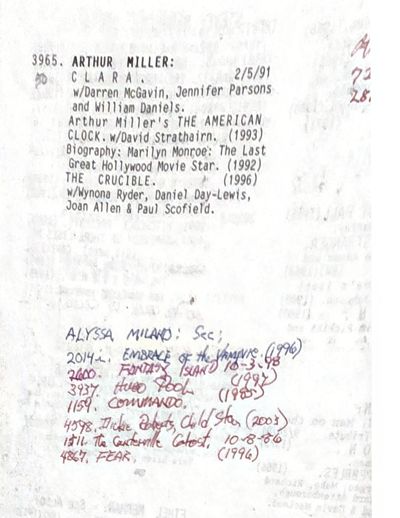 3965. ARTHUR MILLER:
C L A R A . 2/5/91
w/Darren McGavin, Jennifer Parsons
and William Daniels.
Arthur Miller's THE AMERICAN
CLOCK. w/David Strathairn. (1993)
Biography: Marilyn Monroe: The Last
Great Hollywood Movie Star. (1992)
THE CRUCIBLE. (1996)
w/Wynona Ryder, Daniel Day-Lewis,
Joan Allen & Paul Scofield.
ALYSSA MILANO: See;
2014i. EMBRACE of the Vampire. (1996)
2600. FANTASY ISLAND 10-3-98
3937. HUGO POOL (1997)
1159. COMMANDO. (1985)
4598. Dickie Roberts, Child Star, (2003)
1511. The Canterville Ghost, 10-8-86
4867. FEAR. (1996)